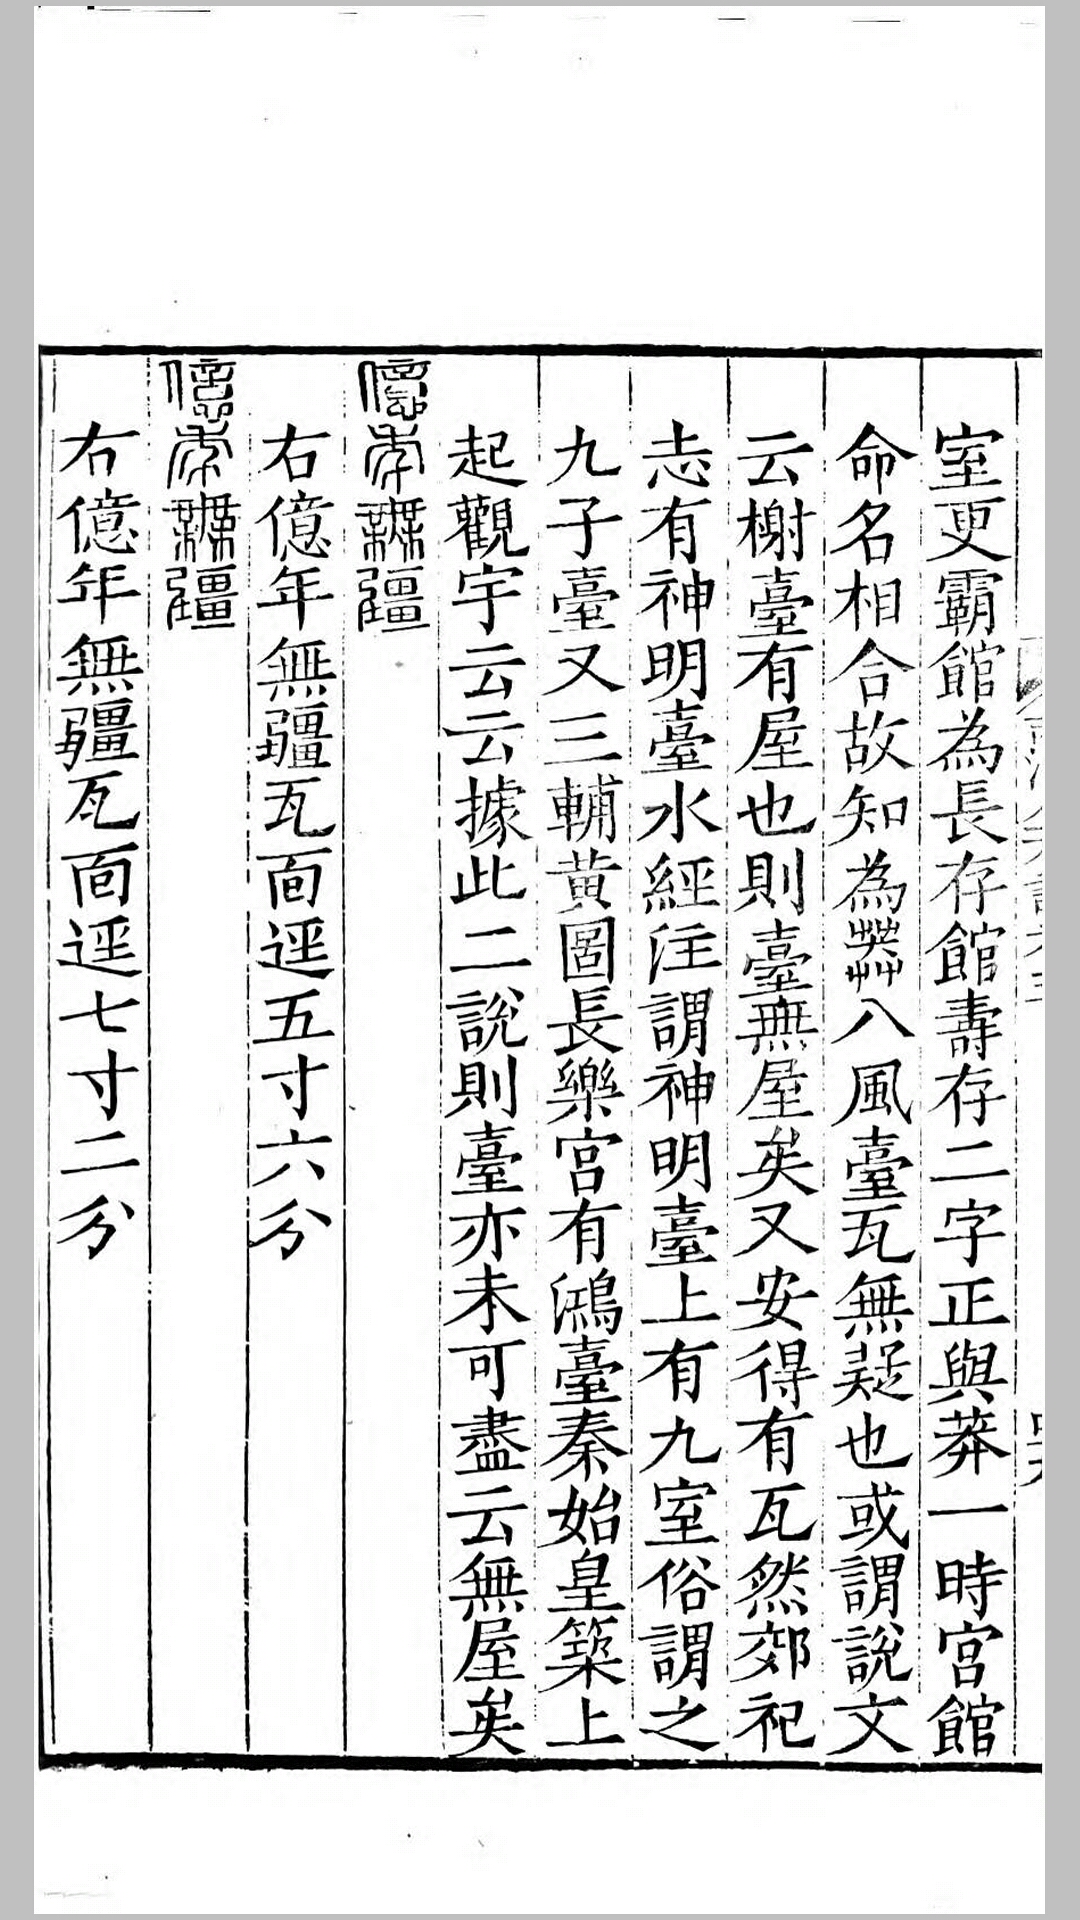 室更霸館為長存館壽存二字正與莽一時宮館
命名相合故知為莽八風臺瓦無疑也或謂說文
云榭臺有屋也則臺無屋矣又安得有瓦然郊祀
志有神明臺水經注謂神明臺上有九室俗謂之
九子臺又三輔黃圖長樂宮有鴻臺秦始皇築上
起觀宇云云據此二說則臺亦未可盡云無屋矣
億年無疆
右億年無疆瓦面逕五寸六分
億年無疆
右億年無疆瓦面逕七寸二分